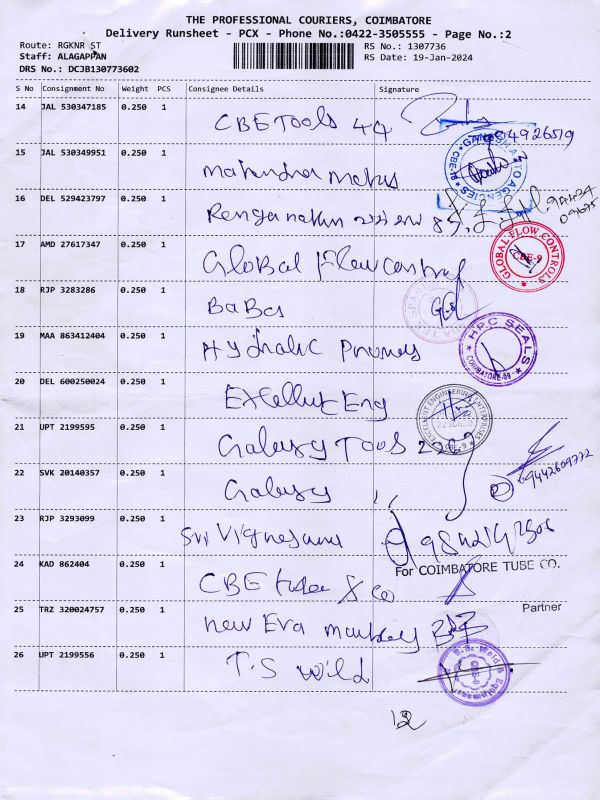 THE PROFESSIONAL COURIERS, COIMBATORE
Delivery Runsheet - PCX - Phone No.:0422-3505555 - Page No.:2
Route: RGKNR ST RS No.: 1307736
Staff: ALAGAPPAN RS Date: 19-Jan-2024
DRS No.: DCJB130773602
S No Consignment No Weight PCS Consignee Details Signature
14 JAL 530347185 0.250 1 CBE Tools 44
15 JAL 530349951 0.250 1 GANESH AUTO AGENCIES CBE-18
16 DEL 529423797 0.250 1
17 AMD 27617347 0.250 1 Global Flow Control GLOBAL FLOW CONTROLS CBE-9
18 RJP 3283286 0.250 1 BaBa
19 MAA 863412404 0.250 1 HPC SEALS COIMBATORE-09
20 DEL 600250024 0.250 1 Excellent Eng EXCELLENT ENGINEERING ENTERPRISES CBE-9
21 UPT 2199595 0.250 1 Galaxy Tools
22 SVK 20140357 0.250 1 Galaxy 9442609772
23 RJP 3293099 0.250 1 Sri Vignesware
For COIMBATORE TUBE CO.
24 KAD 862404 0.250 1 CBE tube & Co
Partner
25 TRZ 320024757 0.250 1 new Era
26 UPT 2199556 0.250 1 T.S Wild
12